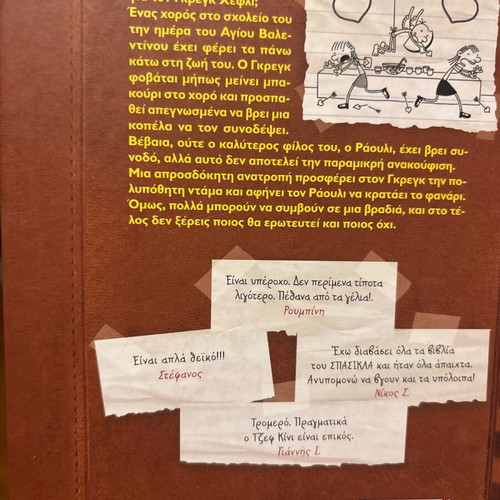 για τον Γκρεγκ Χέφλι;
Ένας χορός στο σχολείο του
την ημέρα του Αγίου Βαλε-
ντίνου έχει φέρει τα πάνω
κάτω στη ζωή του. Ο Γκρεγκ
φοβάται μήπως μείνει μπα-
κούρι στο χορό και προσπα-
θεί απεγνωσμένα να βρει μια
κοπέλα να τον συνοδέψει.
Βέβαια, ούτε ο καλύτερος φίλος του, ο Ράουλι, έχει βρει συ-
νοδό, αλλά αυτό δεν αποτελεί την παραμικρή ανακούφιση.
Μια απροσδόκητη ανατροπή προσφέρει στον Γκρεγκ την πο-
λυπόθητη ντάμα και αφήνει τον Ράουλι να κρατάει το φανάρι.
Όμως, πολλά μπορούν να συμβούν σε μια βραδιά, και στο τέ-
λος δεν ξέρεις ποιος θα ερωτευτεί και ποιος όχι.
Είναι υπέροχο. Δεν περίμενα τίποτα
λιγότερο. Πέθανα από τα γέλια!.
Ρουμπίνη
Είναι απλά θεϊκό!!!
Στέφανος
Έχω διαβάσει όλα τα βιβλία
του ΣΠΑΣΙΚΛΑ και ήταν όλα άπαιχτα.
Ανυπομονώ να βγουν και τα υπόλοιπα!
Νίκος Σ.
Τρομερό. Πραγματικά
ο Τζεφ Κίνι είναι επικός.
Γιάννης Ι.